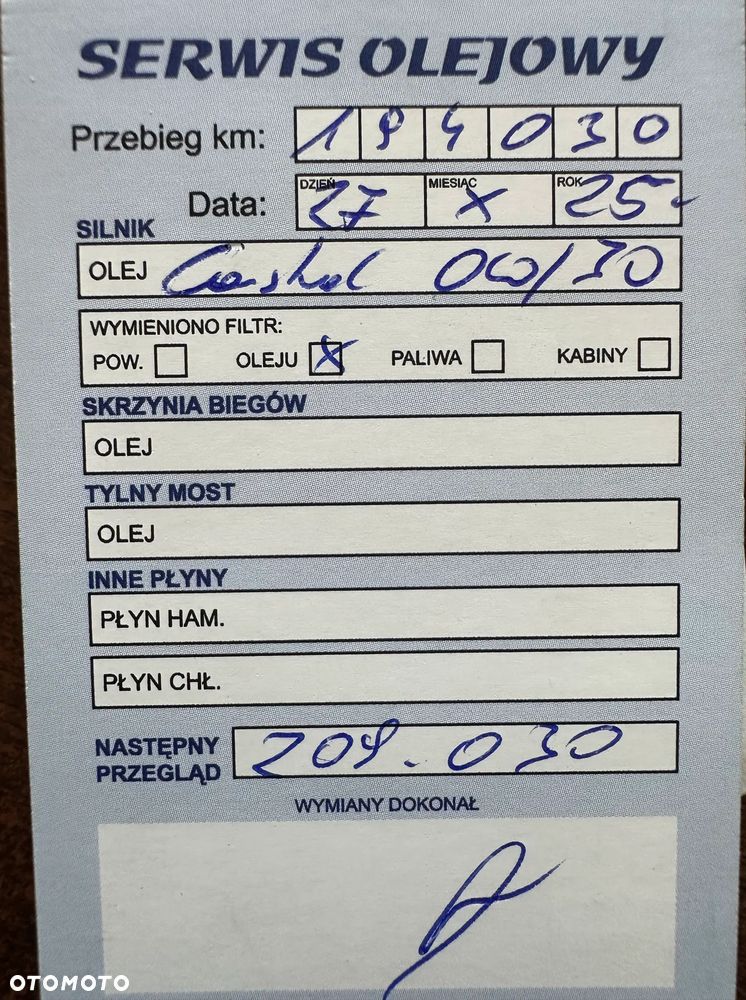 SERWIS OLEJOWY
Przebieg km: 194030
Data: DZIEŃ 27 MIESIĄC X ROK 25-
SILNIK
OLEJ Castrol 0W/30
WYMIENIONO FILTR:
POW. OLEJU X PALIWA KABINY
SKRZYNIA BIEGÓW
OLEJ
TYLNY MOST
OLEJ
INNE PŁYNY
PŁYN HAM.
PŁYN CHŁ.
NASTĘPNY PRZEGLĄD 209.030
WYMIANY DOKONAŁ
OTOMOTO